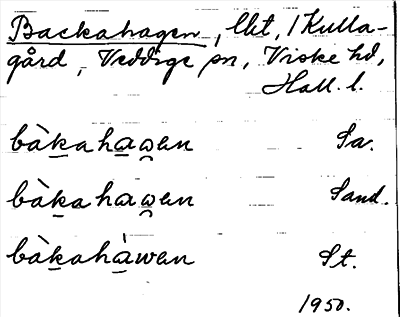 Backahagen, lht, 1 Kulla-
gård, Veddige sn, Viske hd,
Hall. l.
bàkahawen Sa.
bàkahawen Sand.
bàkahàwen St.
1950.